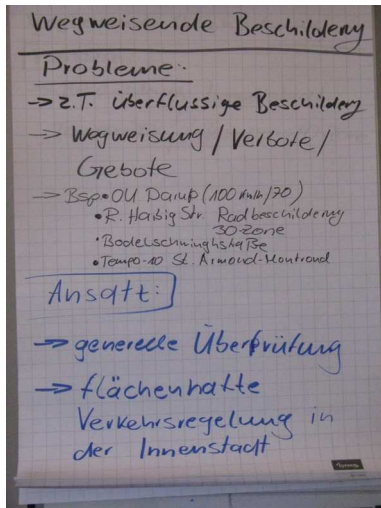 Wegweisende Beschilderung
Probleme:
-> z.T. überflüssige Beschilderung
-> Wegweisung / Verbote /
Gebote
-> Bsp • OU Darup (100 km/h / 70)
• R. Haßig Str. Radbeschilderung
30-Zone
• Bodelschwinghstraße
• Tempo-10 St. Armond-Montrond
Ansatz:
-> generelle Überprüfung
-> flächenhafte
Verkehrsregelung in
der Innenstadt